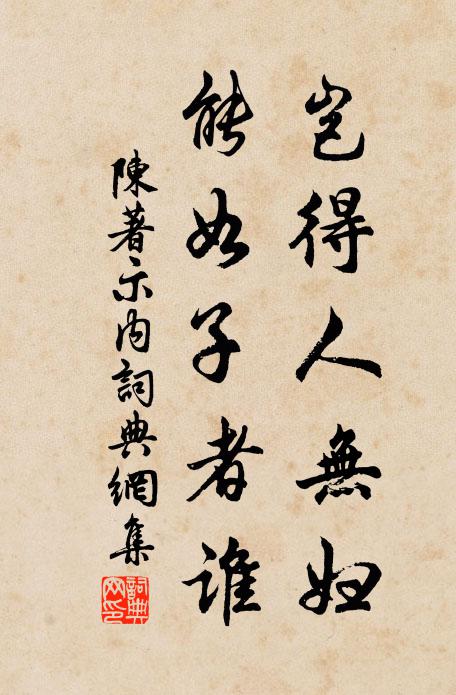 豈得人無婦
能如子者誰
陳著示內詞典網集
詞典網印